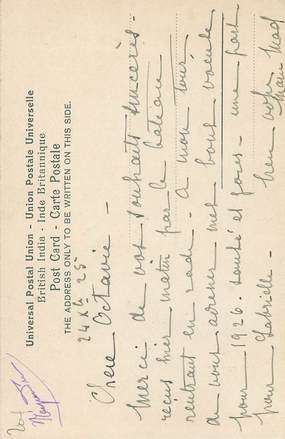 Universal Postal Union - Union Postale Universelle
British India - Inde Britannique
Post Card - Carte Postale
THE ADDRESS ONLY TO BE WRITTEN ON THIS SIDE.
24 Xbre 25
Chere Octavie -
Merci de vos souhaits sincères -
reçus hier matin par le bateau
rentrant en rade. A mon tour
de vous adresser mes bons voeux
pour 1926. Santé et joies - une part
pour Gabrielle -